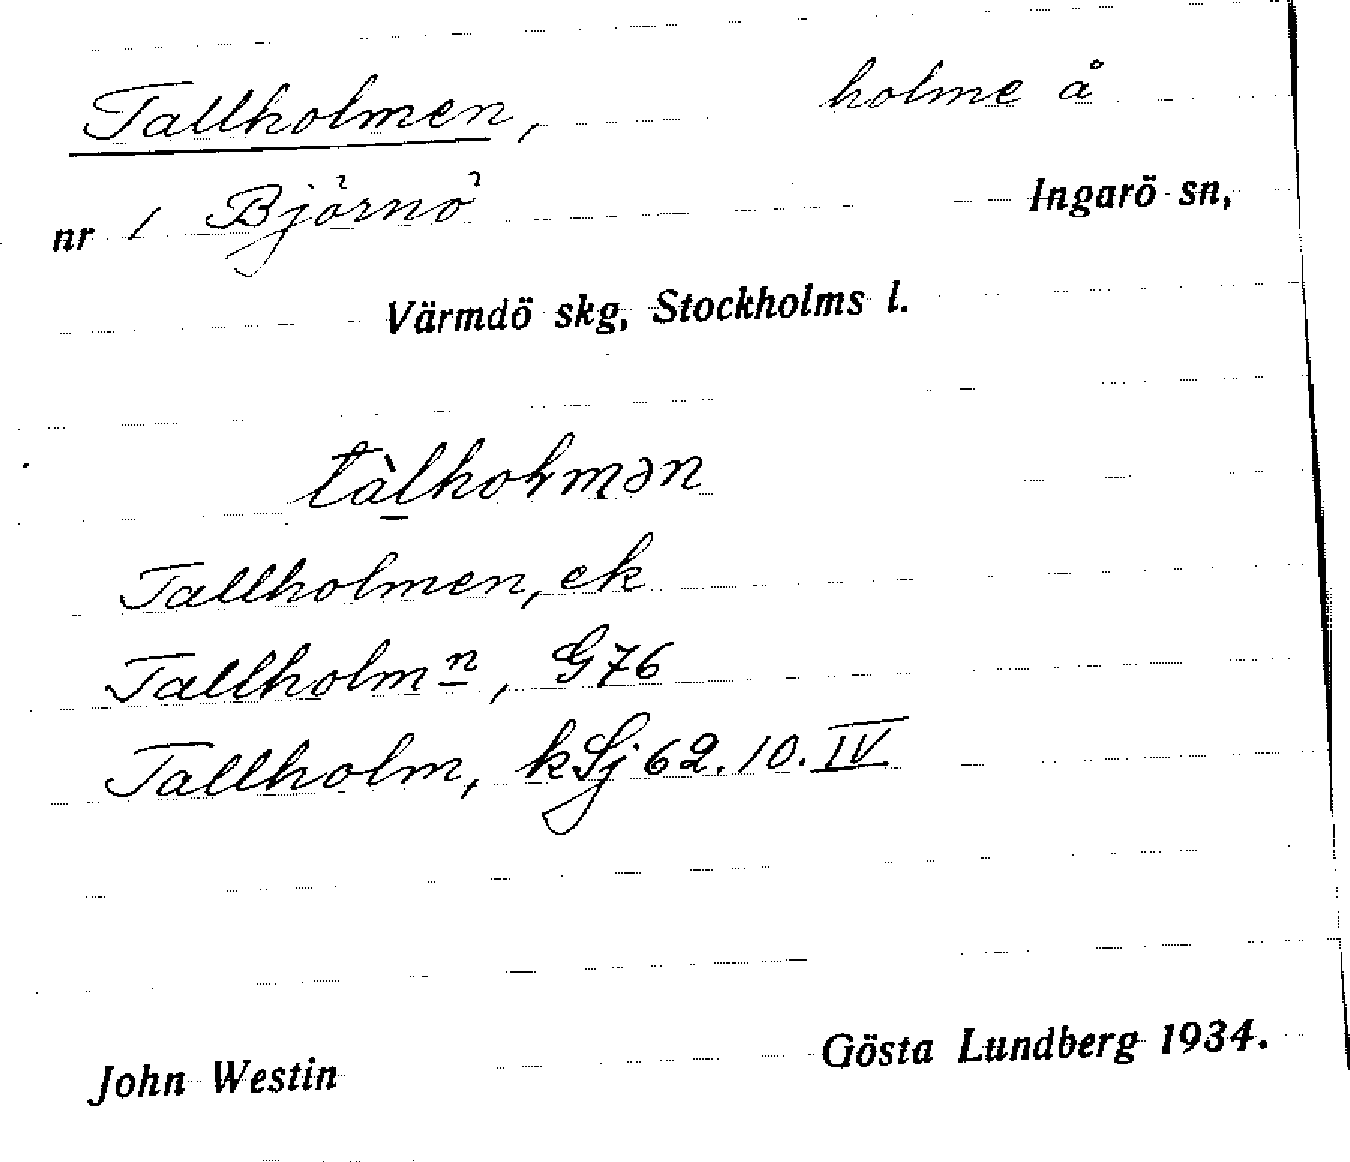 Tallholmen, holme å
nr 1 Björnö Ingarö sn,
Värmdö skg, Stockholms l.
tàlholmən
Tallholmen, ek
Tallholmn, G76
Tallholm, kSj 62.10.IV
John Westin Gösta Lundberg 1934.